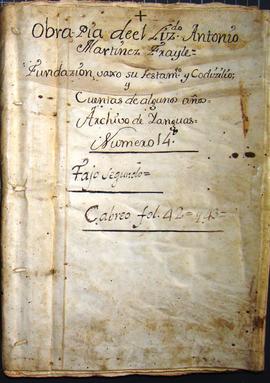 +
Obra Pia de el Lizdo. Antonio
Martinez Frayle=
Fundazion, vaxo su testamto. y Codizilio;
y
Cuentas de algunos años.
Archivo de Yanguas.
Numero 14.
Fajo Segundo=
Cabreo fol. 42= y 43=